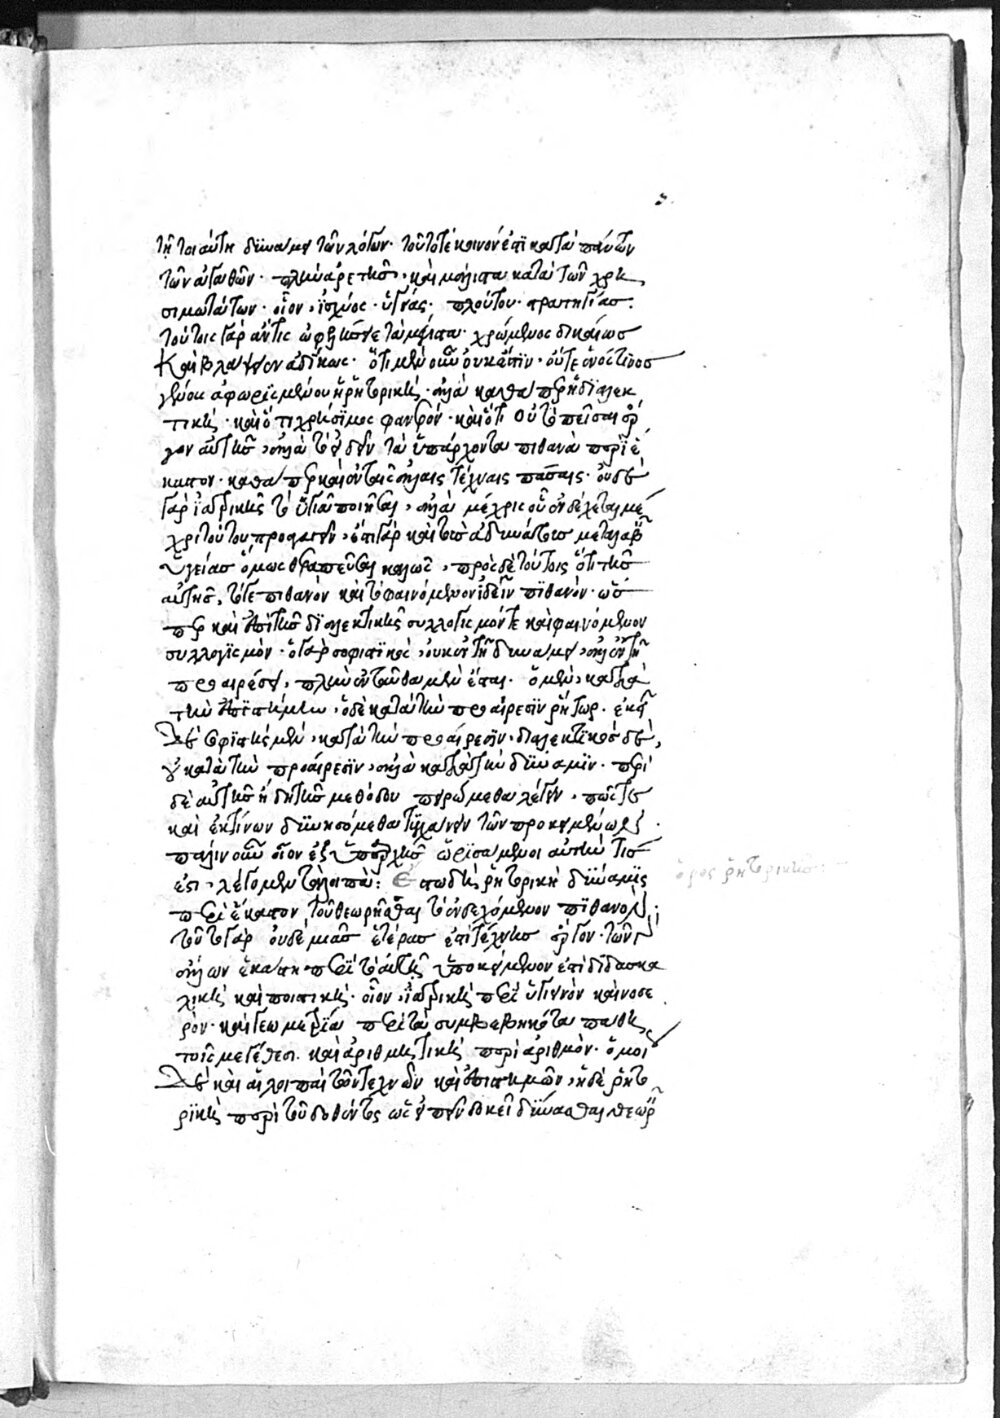 τῇ τοιαύτη δυνάμει τῶν λόγων· τοῦτό τε κοινόν ἐστι κατὰ πάντων
τῶν ἀγαθῶν· πλὴν ἀρετῆς· καὶ μάλιστα κατὰ τῶν χρη
σιμωτάτων· οἷον ἰσχύος· ὑγείας· πλούτου· στρατηγίας·
τούτοις γὰρ ἄν τις ὠφελήσειε τὰ μέγιστα· χρώμενος δικαίως
καὶ βλάψειεν ἀδίκως· ὅτι μὲν οὖν οὐκ ἔστιν· οὔτε ἑνός τινος
γένους ἀφωρισμένου ἡ ῥητορικὴ· ἀλλὰ καθάπερ ἡ διαλεκ
τικὴ· καὶ ὅτι χρήσιμος φανερόν· καὶ ὅτι οὐ τὸ πεῖσαι ἔρ
γον αὐτῆς, ἀλλὰ τὸ ἰδεῖν τὰ ὑπάρχοντα πιθανὰ περὶ ἕ
καστον· καθάπερ καὶ ἐν ταῖς ἄλλαις τέχναις πάσαις· οὐδὲ
γὰρ ἰατρικῆς τὸ ὑγιᾶ ποιῆσαι, ἀλλὰ μέχρις οὗ ἐνδέχεται μέ
χρι τούτου προαγαγεῖν, ἔστι γὰρ καὶ τοὺς ἀδυνάτους μεταλαβεῖν
ὑγείας ὅμως θεραπεῦσαι καλῶς, πρὸς δὲ τούτοις ὅτι τῆς
αὐτῆς, τό τε πιθανὸν καὶ τὸ φαινόμενον ἰδεῖν πιθανόν· ὥσ
περ καὶ ἐπὶ τῆς διαλεκτικῆς συλλογισμόν τε καὶ φαινόμενον
συλλογισμὸν· ὁ γὰρ σοφιστικὸς, οὐκ ἐν τῇ δυνάμει, ἀλλ' ἐν τῇ
προαιρέσει, πλὴν ἐνταῦθα μὲν ἔσται· ὁ μὲν, κατὰ
τὴν ἐπιστήμην, ὁ δὲ κατὰ τὴν προαίρεσιν ῥήτωρ· ἐκεῖ
δὲ σοφιστὴς μὲν, κατὰ τὴν προαίρεσιν· διαλεκτικὸς δὲ,
οὐ κατὰ τὴν προαίρεσιν, ἀλλὰ κατὰ τὴν δύναμιν· περὶ
δὲ αὐτῆς ἤδη τῆς μεθόδου πειρώμεθα λέγειν, πῶς τε
καὶ ἐκ τίνων δυνησόμεθα τυγχάνειν τῶν προκειμένων·
πάλιν οὖν οἷον ἐξ ὑπαρχῆς ὡρισάμενοι αὐτὴν τίς
ἐστι, λέγομεν τὰ λοιπά: Ἔστω δὴ ῥητορικὴ δύναμις
περὶ ἕκαστον τοῦ θεωρῆσαι τὸ ἐνδεχόμενον πιθανόν·
τοῦτο γὰρ οὐδεμιᾶς ἑτέρας ἐστὶ τέχνης ἔργον· τῶν γὰρ
ἄλλων ἑκάστη περὶ τὸ αὐτῆς ὑποκείμενον ἐστὶ διδασκα
λικὴ καὶ πειστικὴ· οἷον, ἰατρικὴ περὶ ὑγιεινὸν καὶ νοσε
ρὸν· καὶ γεωμετρία περὶ τὰ συμβεβηκότα πάθη
τοῖς μεγέθεσι· καὶ ἀριθμητικὴ περὶ ἀριθμὸν· ὁμοί
ως δὲ καὶ αἱ λοιπαὶ τῶν τεχνῶν καὶ ἐπιστημῶν, ἡ δὲ ῥητο
ρικὴ περὶ τοῦ δοθέντος ὡς εἰπεῖν δοκεῖ δύνασθαι θεωρεῖν
ὅρος ῥητορικῆς